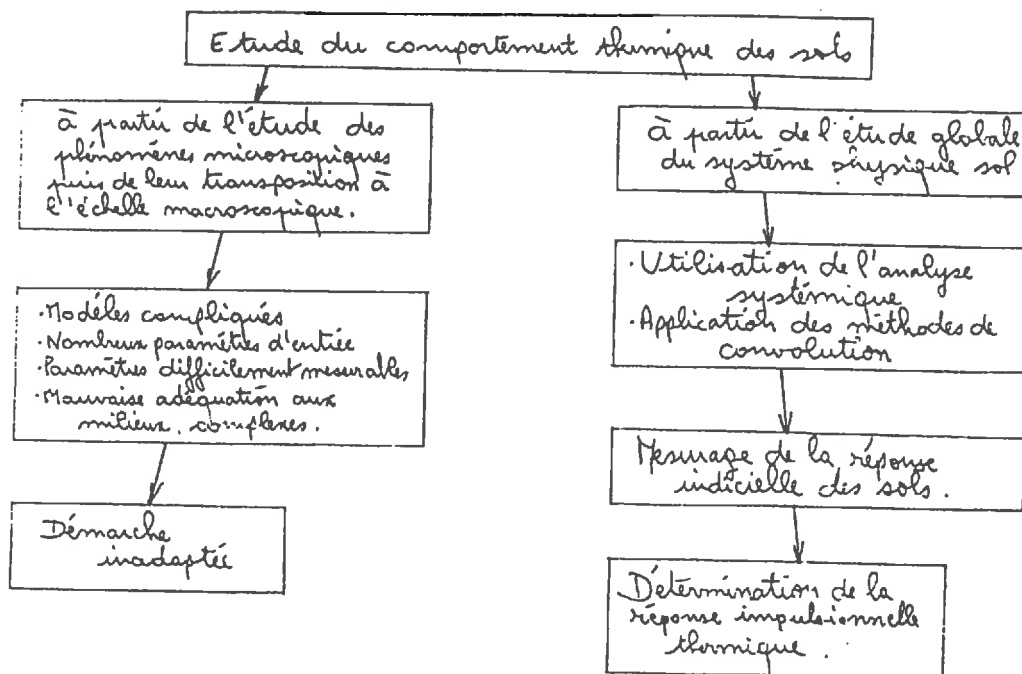 Etude du comportement thermique des sols
à partir de l'étude des
phénomènes microscopiques
puis de leur transposition à
l'échelle macroscopique.
·Modèles compliqués
·Nombreux paramètres d'entrée
·Paramètres difficilement mesurables
·Mauvaise adéquation aux
milieux complexes.
Démarche
inadaptée
à partir de l'étude globale
du système physique sol
·Utilisation de l'analyse
systémique
·Application des méthodes de
convolution
Mesurage de la réponse
indicielle des sols.
Détermination de la
réponse impulsionnelle
thermique.